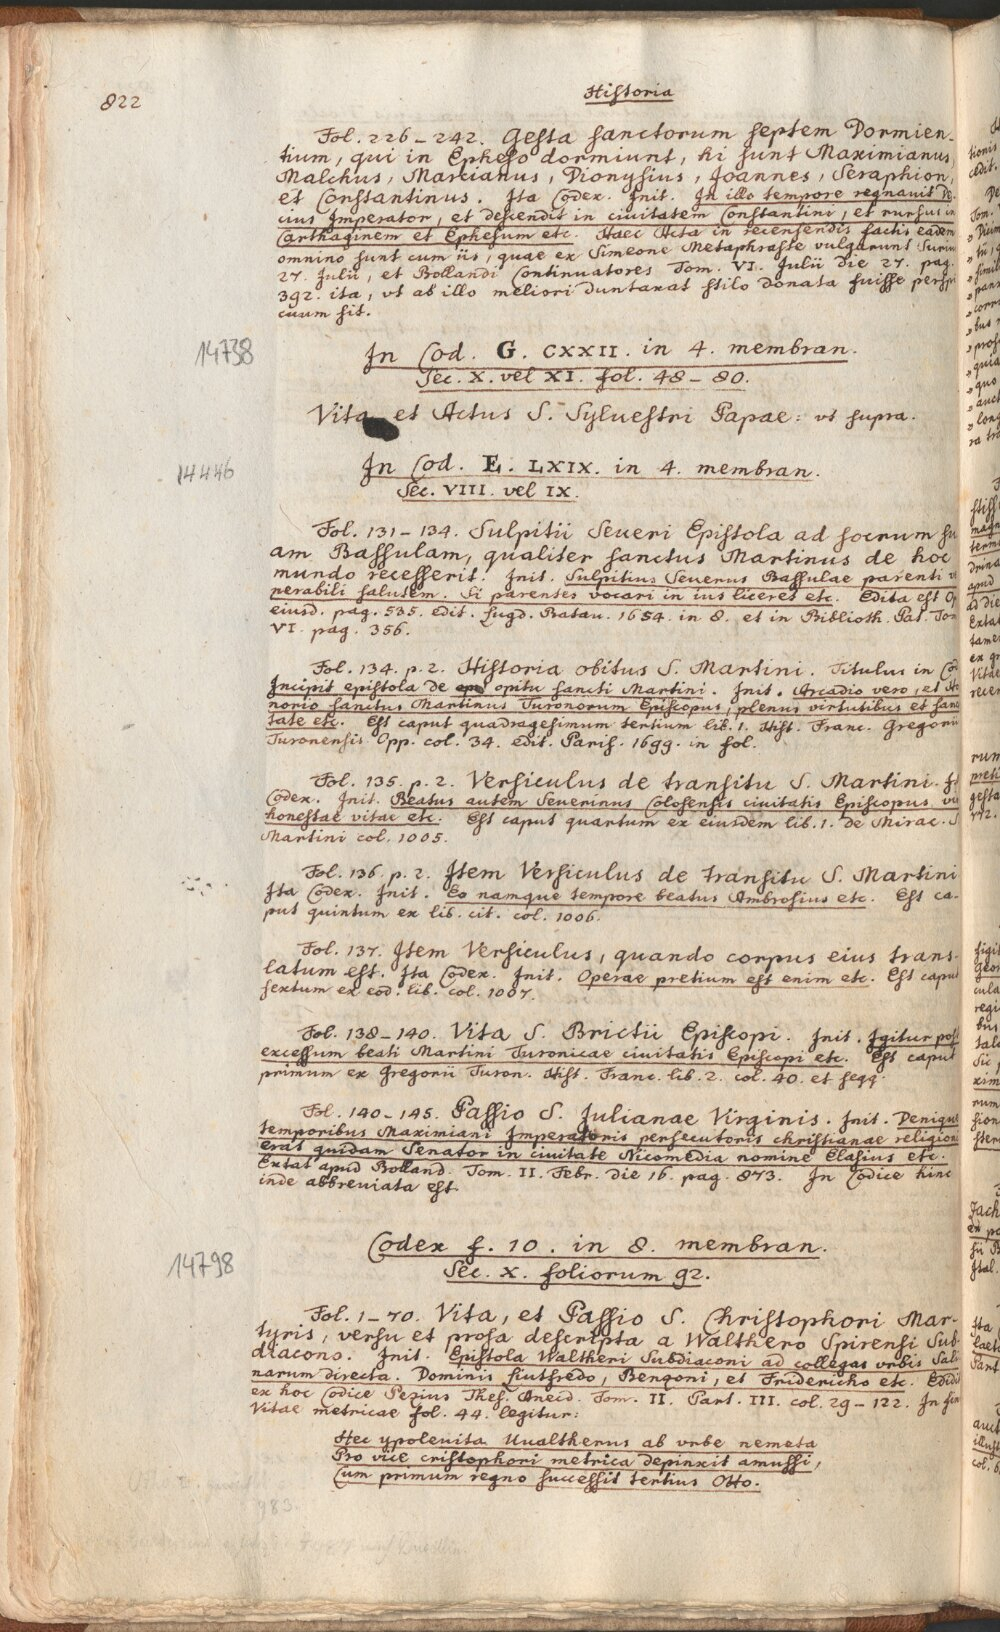 822
Historia
Fol. 226–242. Gesta sanctorum septem Dormien-
tium, qui in Epheso dormiunt, hi sunt Maximianus,
Malchus, Martianus, Dionysius, Joannes, Seraphion,
et Constantinus. Ita Codex. Init. In illo tempore regnauit De
cius Imperator, et descendit in ciuitatem Constantini, et rursus in
Carthaginem et Ephesum etc. Haec Acta in recensendis factis eadem
omnino sunt cum iis, quae ex Simeone Metaphraste vulgarunt Surius
27. Julii, et Bollandi Continuatores Tom. VI. Julii die 27. pag.
392. ita, vt ab illo meliori duntaxat stilo donata fuisse perspi
cuum sit.
14738
In Cod. G. CXXII. in 4. membran.
Sec. X. vel XI. fol. 48–80.
Vita et Actus S. Syluestri Papae: vt supra.
14446
In Cod. E. LXIX. in 4. membran.
Sec. VIII. vel IX.
Fol. 131–134. Sulpitii Seueri Epistola ad socrum su
am Bassulam, qualiter sanctus Martinus de hoc
mundo recesserit. Init. Sulpitius Seuerus Bassulae parenti ve
nerabili salutem. Si parentes vocari in ius liceret etc. Edita est Op
eiusd. pag. 535. edit. Lugd. Batau. 1654. in 8. et in Biblioth. Pat. Tom
VI. pag. 356.
Fol. 134. p. 2. Historia obitus S. Martini. Titulus in Cod
Incipit epistola de opitu sancti Martini. Init. Arcadio vero, et Ho
norio sanctus Martinus Turonorum Episcopus, plenus virtutibus et sanc
tate etc. Est caput quadragesimum tertium lib. 1. Hist. Franc. Gregorii
Turonensis Opp. col. 34. edit. Paris. 1699. in fol.
Fol. 135. p. 2. Versiculus de transitu S. Martini. It
Codex. Init. Beatus autem Seuerinus Colosensis ciuitatis Episcopus vir
honestae vitae etc. Est caput quartum ex eiusdem lib. 1. de Mirac. S
Martini col. 1005.
Fol. 136. p. 2. Item Versiculus de transitu S. Martini
Ita Codex. Init. Eo namque tempore beatus Ambrosius etc. Est ca-
put quintum ex lib. cit. col. 1006.
Fol. 137. Item Versiculus, quando corpus eius trans-
latum est. Ita Codex. Init. Operae pretium est enim etc. Est caput
sextum ex eod. lib. col. 1007.
Fol. 138–140. Vita S. Brictii Episcopi. Init. Igitur post
excessum beati Martini Turonicae ciuitatis Episcopi etc. Est caput
primum ex Gregorii Turon. Hist. Franc. lib. 2. col. 40. et seqq.
Fol. 140–145. Passio S. Julianae Virginis. Init. Denique
temporibus Maximiani Imperatoris persecutoris christianae religionis
erat quidam Senator in ciuitate Nicomedia nomine Elasius etc.
Extat apud Bolland. Tom. II. Febr. die 16. pag. 873. In Codice hinc
inde abbreviata est.
14798
Codex f. 10. in 8. membran.
Sec. X. foliorum 92.
Fol. 1–70. Vita, et Passio S. Christophori Mar-
tyris, versu et prosa descripta a Walthero Spirensi Sub-
diacono. Init. Epistola Waltheri Subdiaconi ad collegas vrbis Sali
narum directa. Dominis Liutfredo, Benzoni, et Fridericho etc. Edidit
ex hoc Codice Pezius Thes. Anecd. Tom. II. Part. III. col. 29–122. In fine
Vitae metricae fol. 44. legitur:
Hec ypoleuita Uualtherus ab vrbe nemeta
Pro vice cristophori metrica depinxit amussi,
Cum primum regno successit tertius Otto.
983.